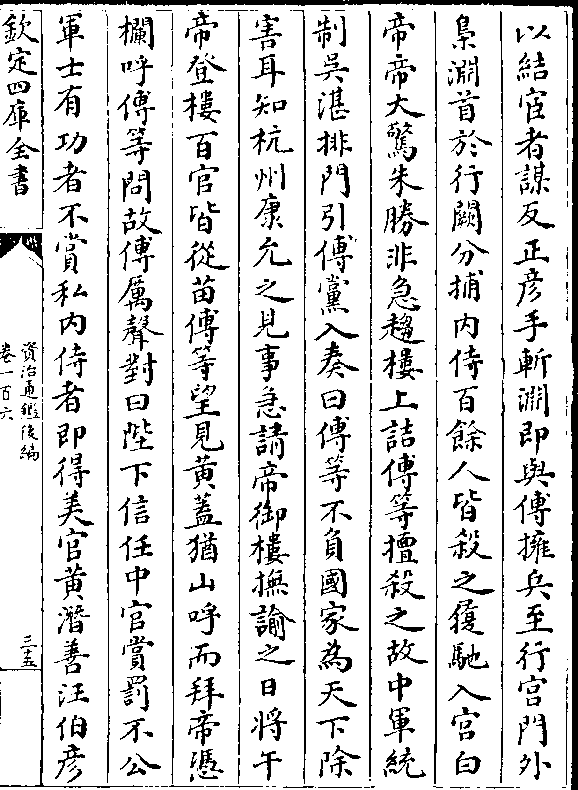 以結宦者謀反正彦手斬淵即與傅擁兵至行宫門外
梟淵首於行闕分捕内侍百餘人皆殺之履馳入宫白
帝帝大驚朱勝非急趨樓上詰傅等擅殺之故中軍統
制吳湛排門引傅黨入奏曰傅等不負國家為天下除
害耳知杭州康允之見事急請帝御樓撫諭之日將午
帝登樓百官皆從苗傅等望見黄蓋猶山呼而拜帝憑
欄呼傅等問故傅厲聲對曰陛下信任中官賞罰不公
軍士有功者不賞私内侍者即得美官黄潛善汪伯彦
欽定四庫全書
資治通鑑後編
卷一百六
三十五